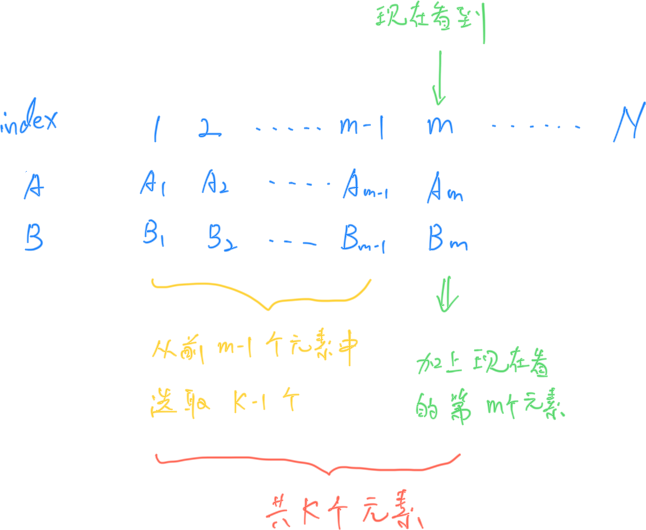 现在看到
index 1 2 ..... m-1 m ...... N
A A1 A2 .... Am-1 Am
B B1 B2 .... Bm-1 Bm
从前 m-1 个元素中
选取 K-1 个
加上现在看
的第 m个元素
共K个元素